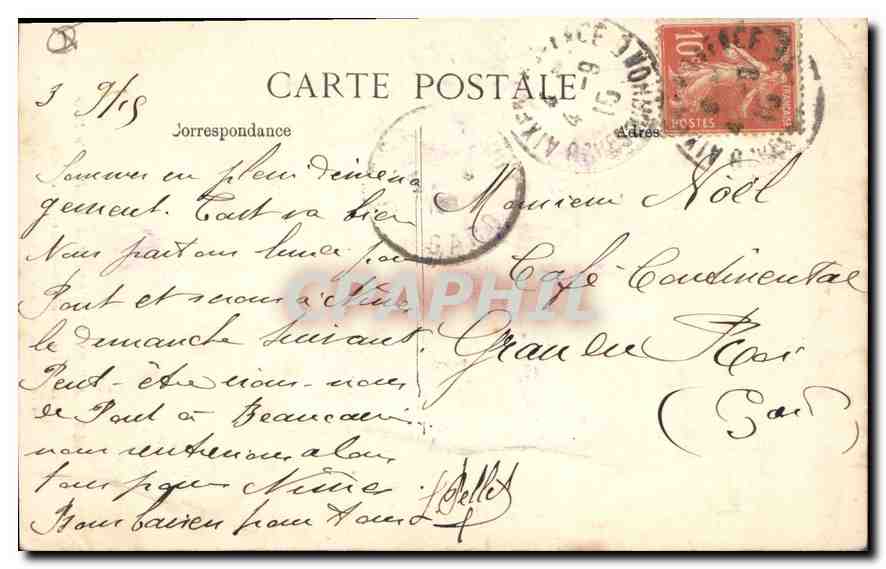 CARTE POSTALE
Correspondance
Adres
10
POSTES
FRANÇAISE
GARD
CPAPHIL
Sommes en plein démena
gement. Tout va bien
Nous partons lundi pour
Pont et serons à Nîmes
le dimanche suivant.
Peut-être irons-nous
de Pont à Beaucaire
nous rentrerons alors
tous pour Nîmes.
Bons baisers pour tous
Pellet
Monsieur Noël
Café Continental
Grau du Roi
(Gard)